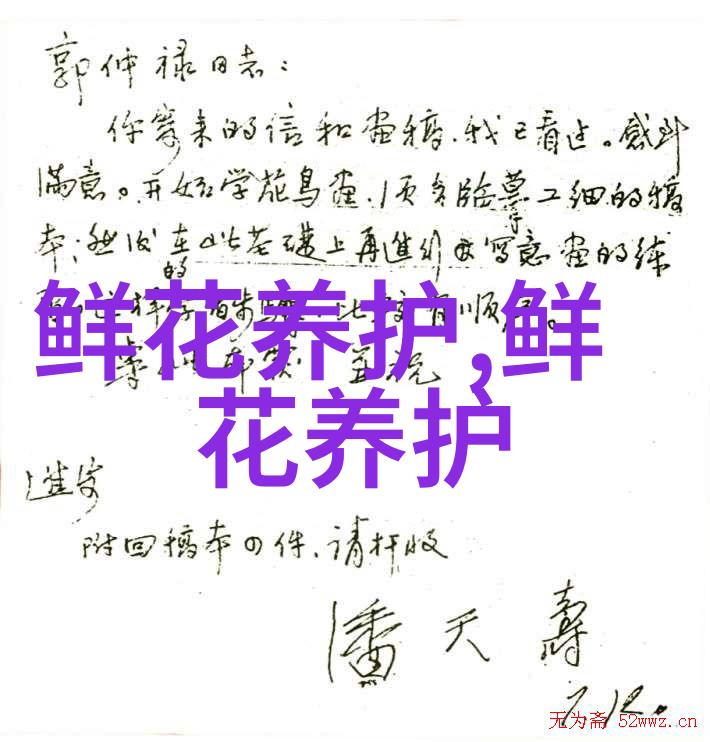 郭仲禄同志：
你寄来的信和画稿，我已看过。感到
满意。开始学花鸟画，须多临摹工细的稿
本；然后在此基础上再进行写意画的练
的
鲜花养护,鲜
花养护
进安
附回稿本四件，请检收
潘天寿
7.12.
无为斋 52wwz.cn